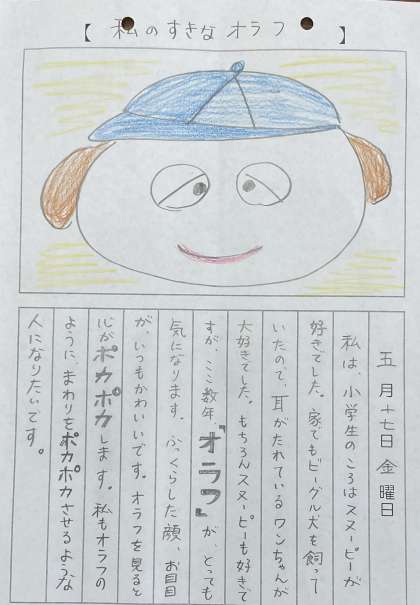 【 私のすきなオラフ 】
五月十七日 金曜日
私は、小学生のころはスヌーピーが
好きでした。家でもビーグル犬を飼って
いたので、耳がたれているワンちゃんが
大好きでした。もちろんスヌーピーも好きで
すが、ここ数年、『オラフ』が、とっても
気になります。ふっくらした顔、お目目
が、いつもかわいいです。オラフを見ると
心がポカポカします。私もオラフの
ように、まわりをポカポカさせるような
人になりたいです。